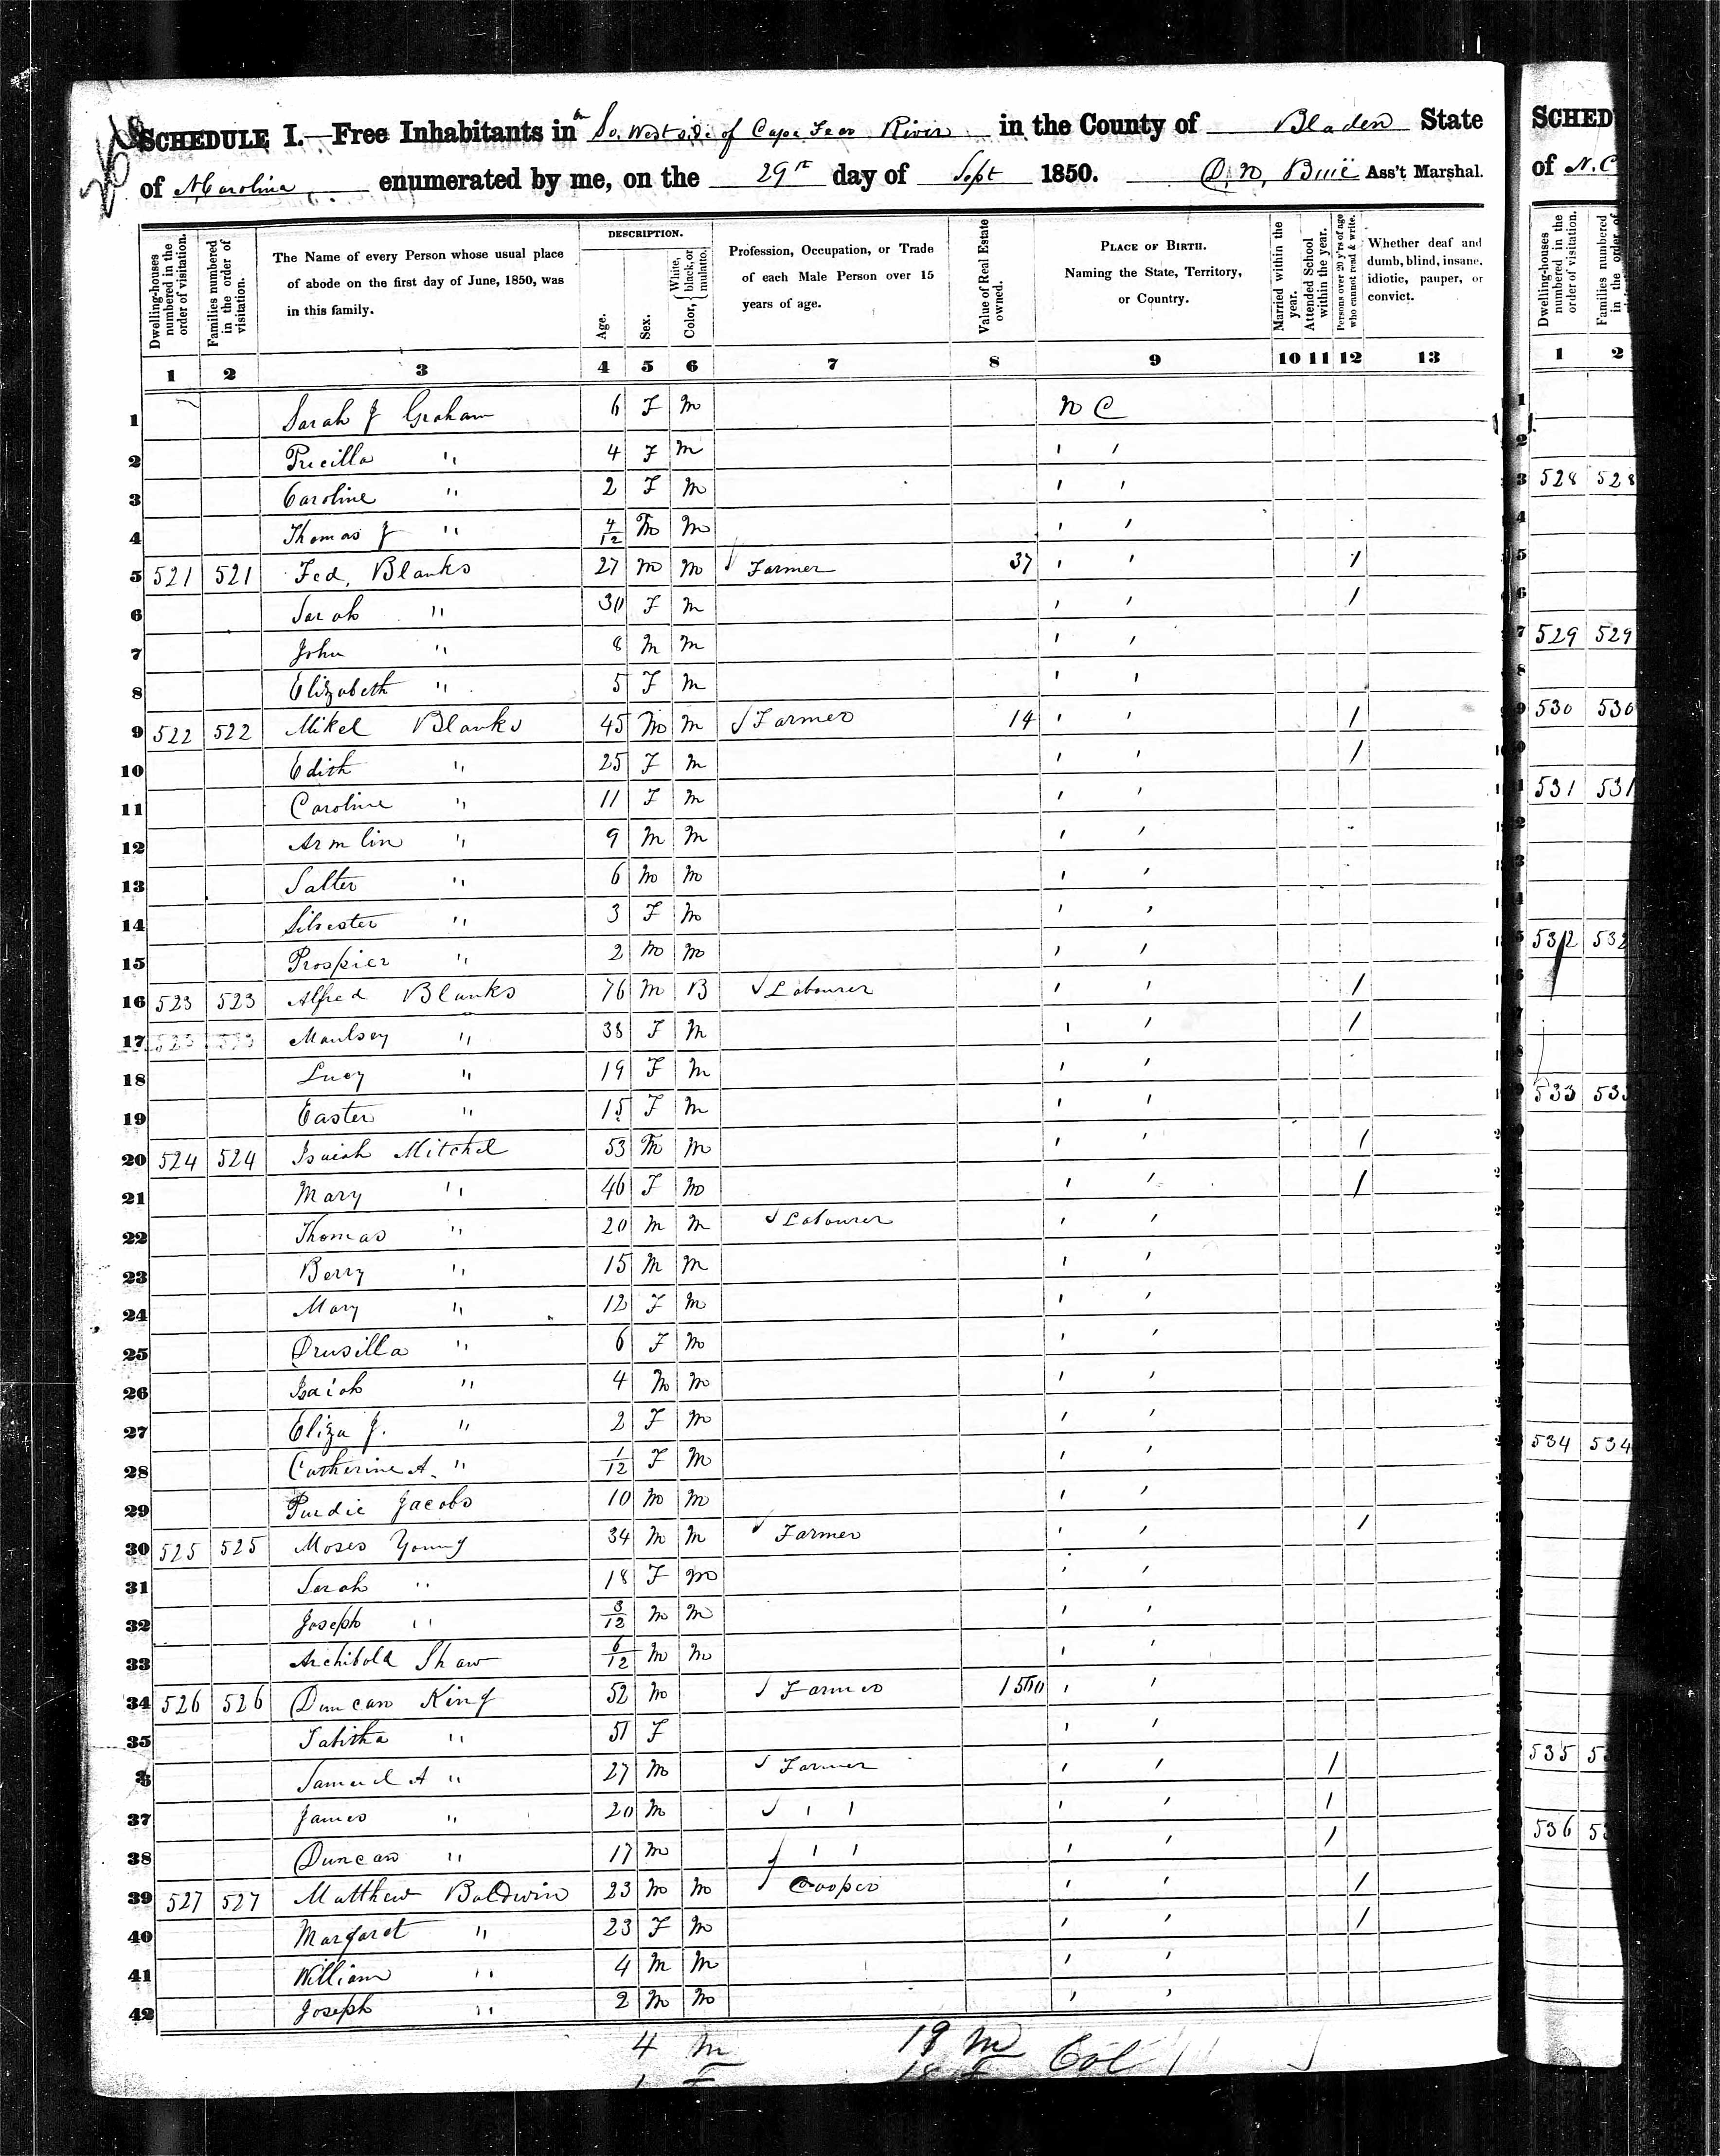 SCHEDULE I.—Free Inhabitants in So. West side of Cape Fear River in the County of Bladen State
of N. Carolina enumerated by me, on the 29th day of Sept 1850. D. N. Buie Ass't Marshal.
Dwelling-houses numbered in the order of visitation.
Families numbered in the order of visitation.
The Name of every Person whose usual place of abode on the first day of June, 1850, was in this family.
DESCRIPTION.
Age.
Sex.
Color, { White, black, or mulatto.
Profession, Occupation, or Trade of each Male Person over 15 years of age.
Value of Real Estate owned.
PLACE OF BIRTH. Naming the State, Territory, or Country.
Married within the year.
Attended School within the year.
Persons over 20 y'rs of age who cannot read & write.
Whether deaf and dumb, blind, insane, idiotic, pauper, or convict.
1 2 3 4 5 6 7 8 9 10 11 12 13
1 Sarah J Graham 6 F M N C
2 Precilla " 4 F M ' '
3 Caroline " 2 F M ' '
4 Thomas J " 4/12 M M ' '
5 521 521 Fed, Blanks 27 M M Farmer 37 ' ' /
6 Sarah " 30 F M ' ' /
7 John " 8 M M ' '
8 Elizabeth " 5 F M ' '
9 522 522 Mikel Blanks 45 M M Farmer 14 ' ' /
10 Edith " 25 F M ' ' /
11 Caroline " 11 F M ' '
12 Armlin " 9 M M ' '
13 Salter " 6 M M ' '
14 Silvester " 3 F M ' '
15 Prospier " 2 M M ' '
16 523 523 Alfred Blanks 76 M B Labourer ' ' /
17 523 523 Maulsey " 38 F M ' ' /
18 Lucy " 19 F M ' '
19 Easter " 15 F M ' '
20 524 524 Isaiah Mitchel 53 M M ' ' /
21 Mary " 46 F M ' ' /
22 Thomas " 20 M M Labourer ' '
23 Berry " 15 M M ' '
24 Mary " 12 F M ' '
25 Drusilla " 6 F M ' '
26 Isaiah " 4 M M ' '
27 Eliza J. " 2 F M ' '
28 Catherine A. " 1/12 F M ' '
29 Purdie Jacobs 10 M M ' '
30 525 525 Moses Young 34 M M Farmer ' ' /
31 Sarah " 18 F M ' '
32 Joseph " 3/12 M M ' '
33 Archibold Shaw 6/12 M M ' '
34 526 526 Duncan King 52 M Farmer 1500 ' '
35 Tabitha " 51 F ' '
36 Samuel A " 27 M Farmer ' ' /
37 James " 20 M ' ' ' ' /
38 Duncan " 17 M ' ' ' ' /
39 527 527 Matthew Baldwin 23 M M Cooper ' ' /
40 Margaret " 23 F M ' ' /
41 William " 4 M M ' '
42 Joseph " 2 M M ' '
4 M 19 M Col
18 F
SCHED
of N.C
1 2
528 528
529 529
530 530
531 531
532 532
533 533
534 534
535
536